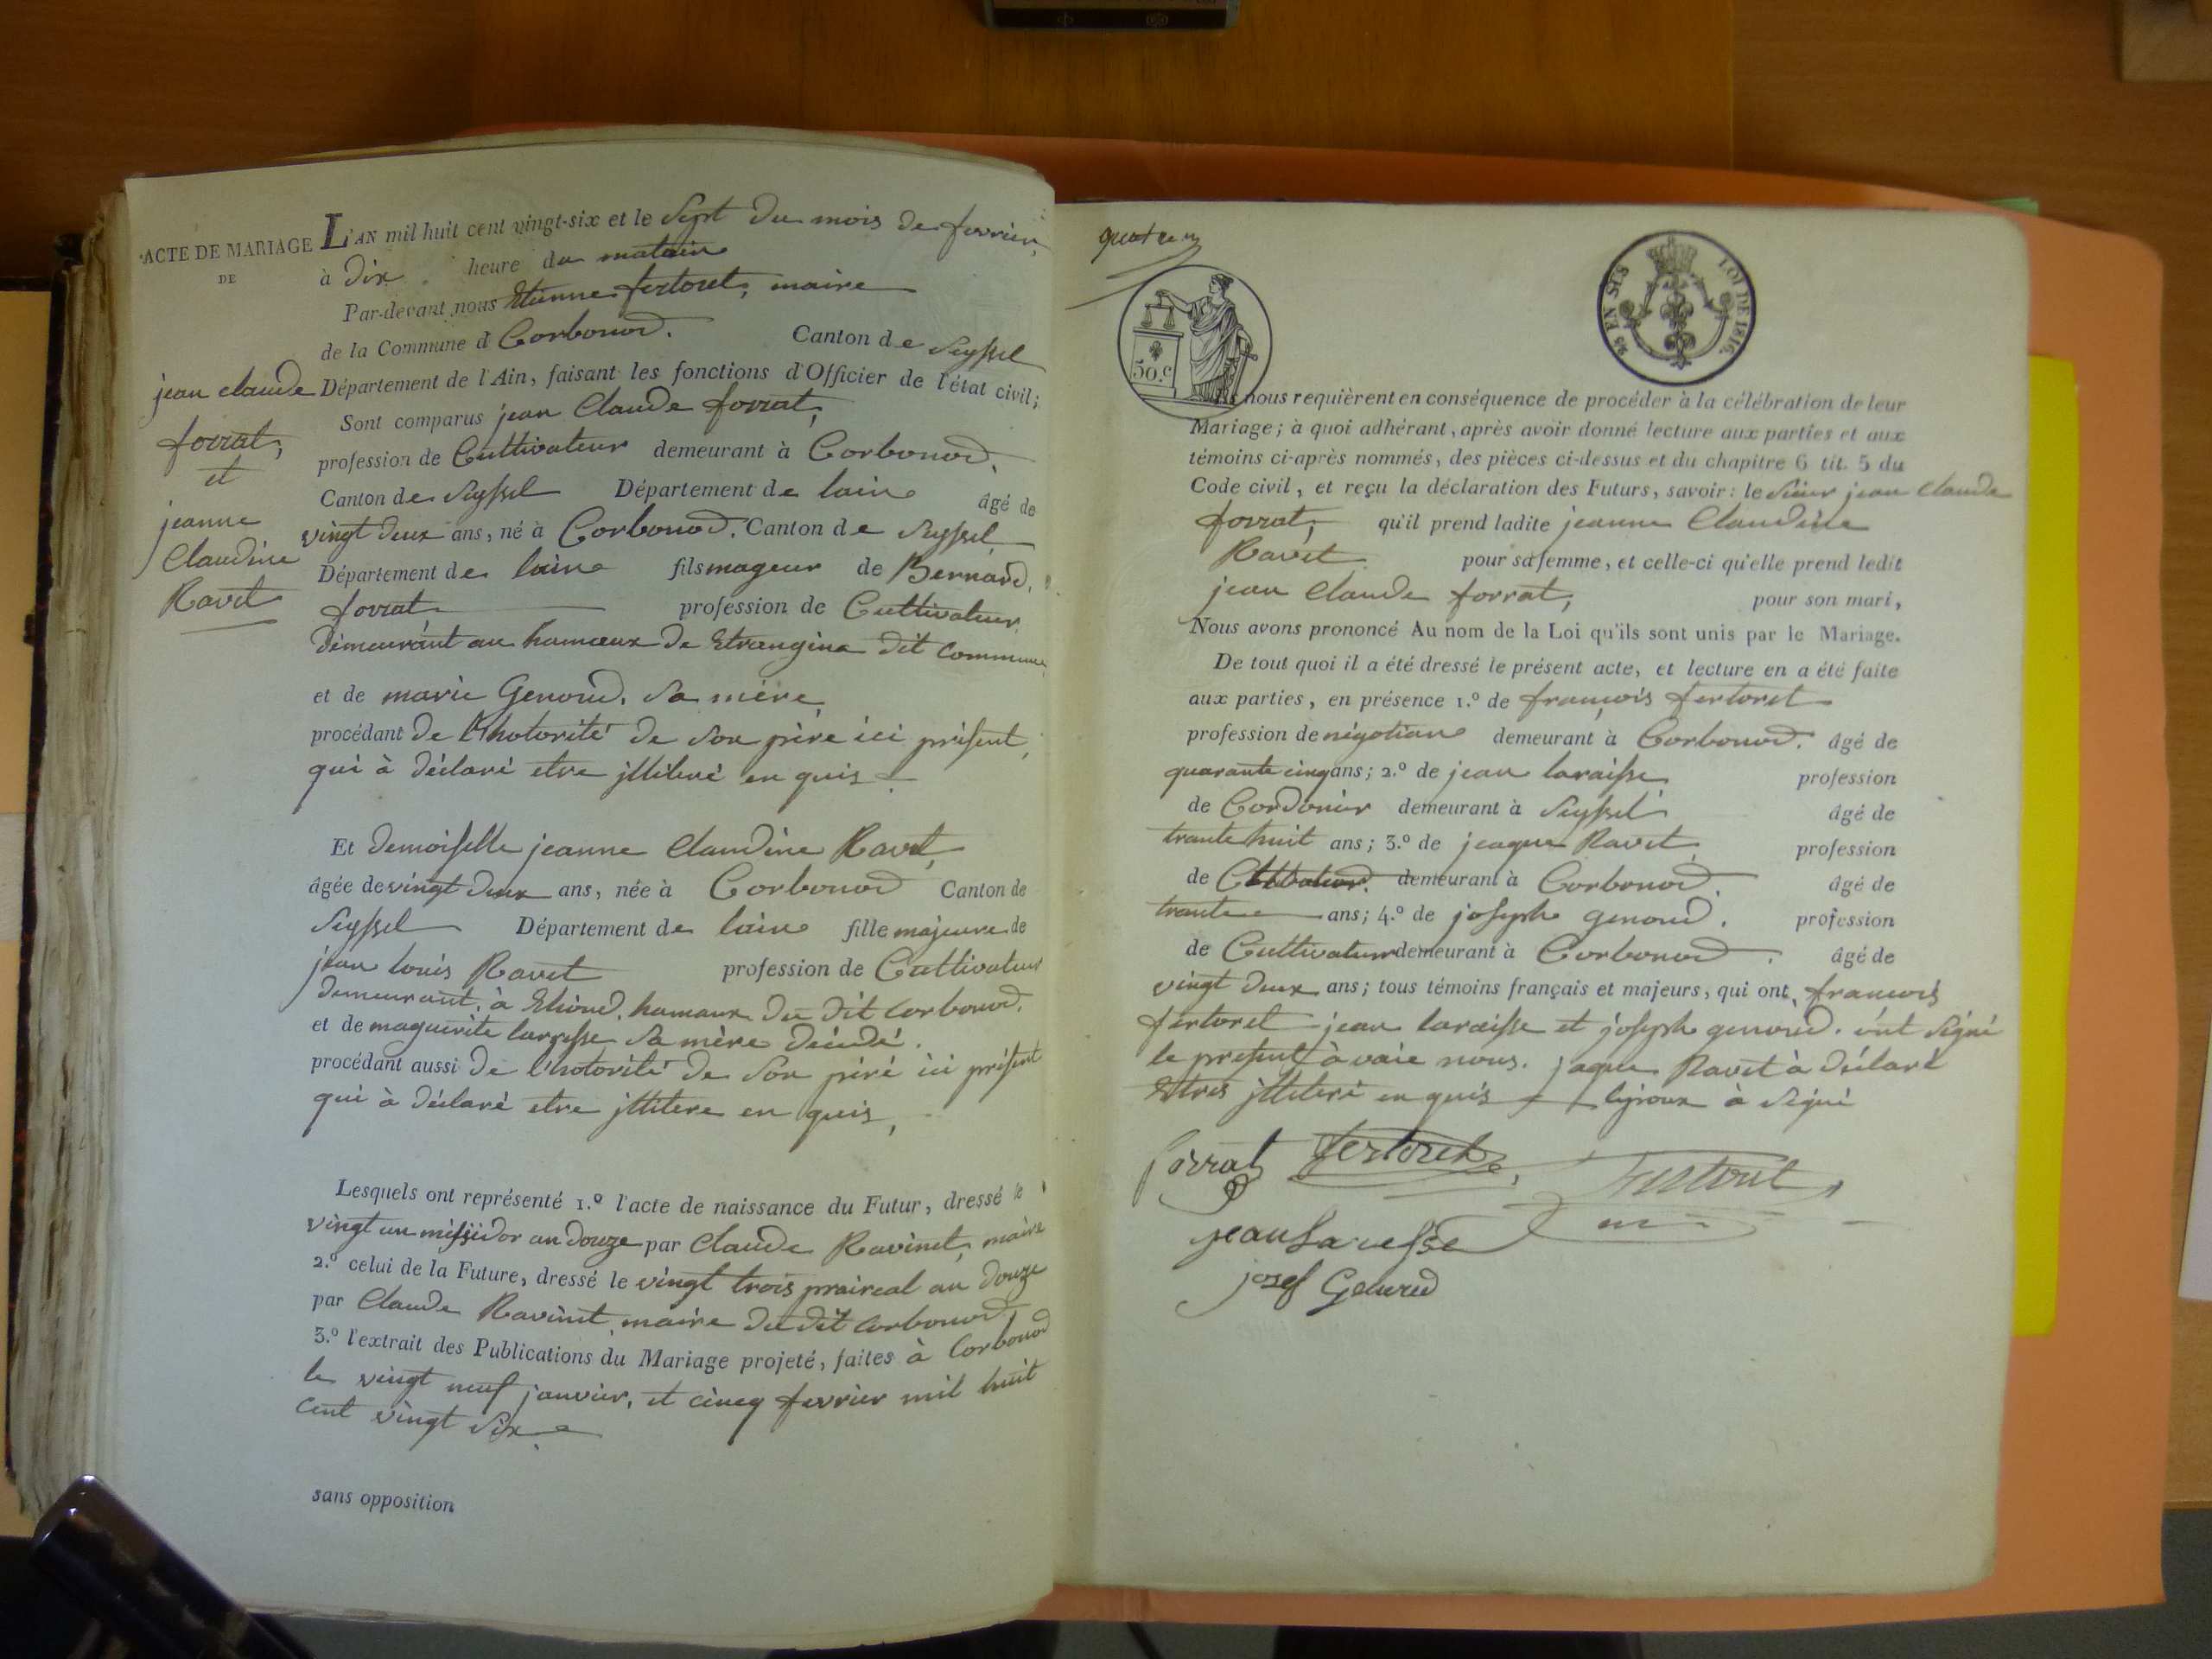 ACTE DE MARIAGE
DE
jean claude
forrat,
et
jeanne
Claudine
Ravet
L'AN mil huit cent vingt-six et le Sept du mois de fevrier,
à dix heure du matain
Par-devant nous Etienne fertoret, maire
de la Commune d Corbonod. Canton de Seyssel
Département de l'Ain, faisant les fonctions d'Officier de l'état civil;
Sont comparus jean Claude forrat,
profession de Cultivateur demeurant à Corbonod,
Canton de Seyssel Département de lain âgé de
vingt deux ans, né à Corbonod. Canton de Seyssel
Département de lain fils mageur de Bernard,
forrat, profession de Cultivateur
demeurant au hamaux de Etrangina dit commune
et de marie Genoud, sa mère,
procédant de lhotorité de son père ici présent,
qui à déclaré etre illiteré en quis
Et demoiselle jeanne Claudine Ravet,
âgée de vingt deux ans, née à Corbonod Canton de
Seyssel Département de lain fille majeure de
jean louis Ravet profession de Cultivateur
demeurant, à hamaux du dit corbonod,
et de maguerite laresse sa mère décédé.
procédant aussi de l'hotorité de son père ici présent
qui à déclaré etre illitere en quis,
Lesquels ont représenté 1.º l'acte de naissance du Futur, dressé le
vingt un messidor an douze par Claude Ravinet, maire
2.º celui de la Future, dressé le vingt trois praireal an douze
par Claude Ravinet maire du dit corbonod,
3.º l'extrait des Publications du Mariage projeté, faites à Corbonod
le vingt neuf janvier, et cincq fevrier mil huit
cent vingt six
sans opposition
50.c
EN SUS
LOI DE 1816.
nous requièrent en conséquence de procéder à la célébration de leur
Mariage; à quoi adhérant, après avoir donné lecture aux parties et aux
témoins ci-après nommés, des pièces ci-dessus et du chapitre 6 tit. 5 du
Code civil, et reçu la déclaration des Futurs, savoir: le Sieur jean Claude
forrat, qu'il prend ladite jeanne Claudine
Ravet pour sa femme, et celle-ci qu'elle prend ledit
jean Claude forrat, pour son mari,
Nous avons prononcé Au nom de la Loi qu'ils sont unis par le Mariage.
De tout quoi il a été dressé le présent acte, et lecture en a été faite
aux parties, en présence 1.º de françois fertoret
profession de négotian demeurant à Corbonod. âgé de
quarante cinq ans; 2.º de jean laraisse profession
de Cordonier demeurant à Seyssel âgé de
trante huit ans; 3.º de jeaque Ravet profession
de demeurant à Corbonod. âgé de
trante ans; 4.º de joseph genoud. profession
de Cultivateur demeurant à Corbonod. âgé de
vingt deux ans; tous témoins français et majeurs, qui ont, francois
fertoret jean laraisse et joseph genoud. ont signé
le present à vaie nous. jaque Ravet à déclaré
Etres illiteré en quis lepoux à signé
forrat fertoret
fertoret
jean Laresse
josef Genoud